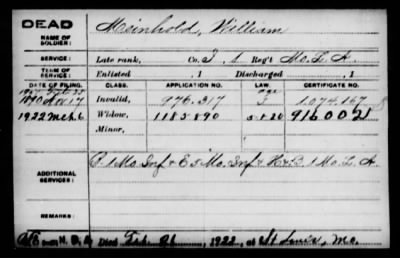 DEAD
NAME OF SOLDIER: Meinhold, William
SERVICE: Late rank, Co. I, 1 Reg't Mo. L. A.
TERM OF SERVICE: Enlisted , 1 Discharged , 1
DATE OF FILING. CLASS. APPLICATION NO. LAW. CERTIFICATE NO.
Invalid, 976.317 1.074.167
1922 Mch. 6 Widow, 1185890 5-1-20 916002
Minor,
ADDITIONAL SERVICES: B. 1 Mo. Inf + E 5 Mo. Inf + H + B. 1 Mo. L. A.
REMARKS:
Died Feb. , 1922, at St. Louis, Mo.